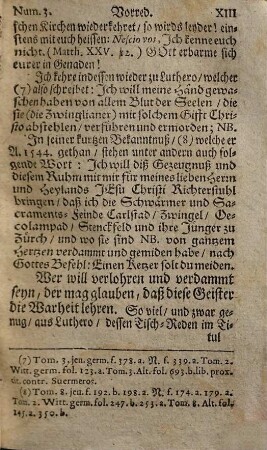 Num. 3. Vorred. XIII
schen Kirchen wiederkehret / so wirds leyder! ein-
stens mit euch heissen: Nescio vos, Ich kenne euch
nicht. (Matth. XXV. ꝟ2.) GOtt erbarme sich
eurer in Genaden!
Ich kehre indessen wieder zu Luthero / welcher
(7) also schreibet: Ich will meine Händ gewa-
schen haben von allem Blut der Seelen / die
sie (die Zwinglianer) mit solchem Gifft Chri-
sto abstehlen / verführen und ermorden; NB.
In seiner kurtzen Bekanntnuß / (8) welcher er
A. 1544. gethan / stehen unter andern auch fol-
gende Wort: Ich will diß Gezeugnuß und
diesem Ruhm mit mir für meines lieben HErrn
und Heylands JEsu Christi Richterstuhl
bringen / daß ich die Schwärmer und Sa-
craments-Feinde Carlstad / Zwingel / Oe-
colampad / Stenckfeld und ihre Jünger zu
Zürch / und wo sie sind NB. von gantzem
Hertzen verdammt und gemiden habe / nach
Gottes Befehl: Einen Ketzer solt du meiden.
Wer will verlohren und verdammt
seyn, der mag glauben, daß diese Geister
die Warheit lehren. So viel / und zwar ge-
nug / aus Luthero / dessen Tisch-Reden im Ti-
tul
(7) Tom. 3. jen. germ. f. 378. a. N. f. 339. a. Tom. 2.
Witt. germ. fol. 123. a. Tom. 3. Alt. fol. 693. b. lib. prox.
in contr. Suermeros.
(8) Tom. 8. jen. f. 192. b. 198. a. N. f. 174. a. 179. a.
Tom. 2. Witt. germ. fol. 247. b. 253. a. Tom. 8. Alt. fol.
345. a. 350. b.